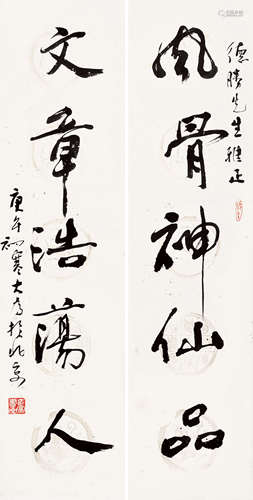 德勝先生雅正
風骨神仙品
文章浩蕩人
庚午初寒大为於北京